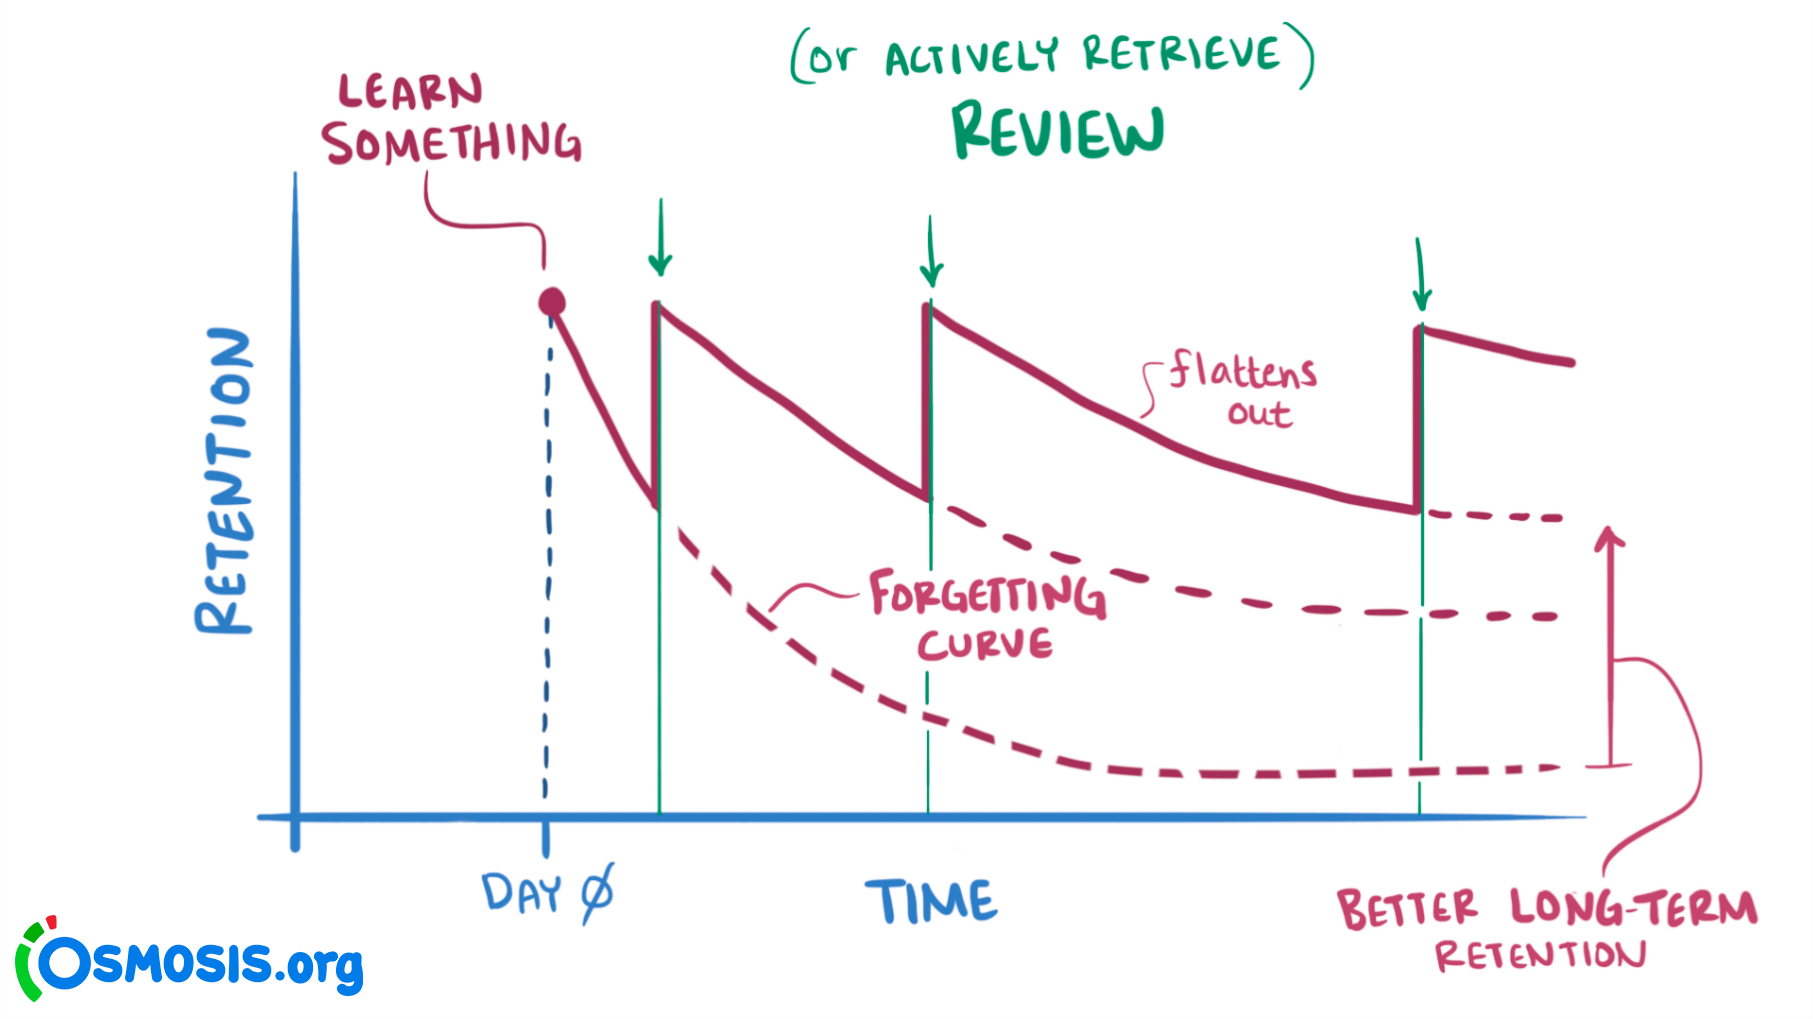 (or ACTIVELY RETRIEVE)
REVIEW
LEARN
SOMETHING
RETENTION
flattens
out
FORGETTING
CURVE
DAY 0
TIME
BETTER LONG-TERM
RETENTION
OSMOSIS.org